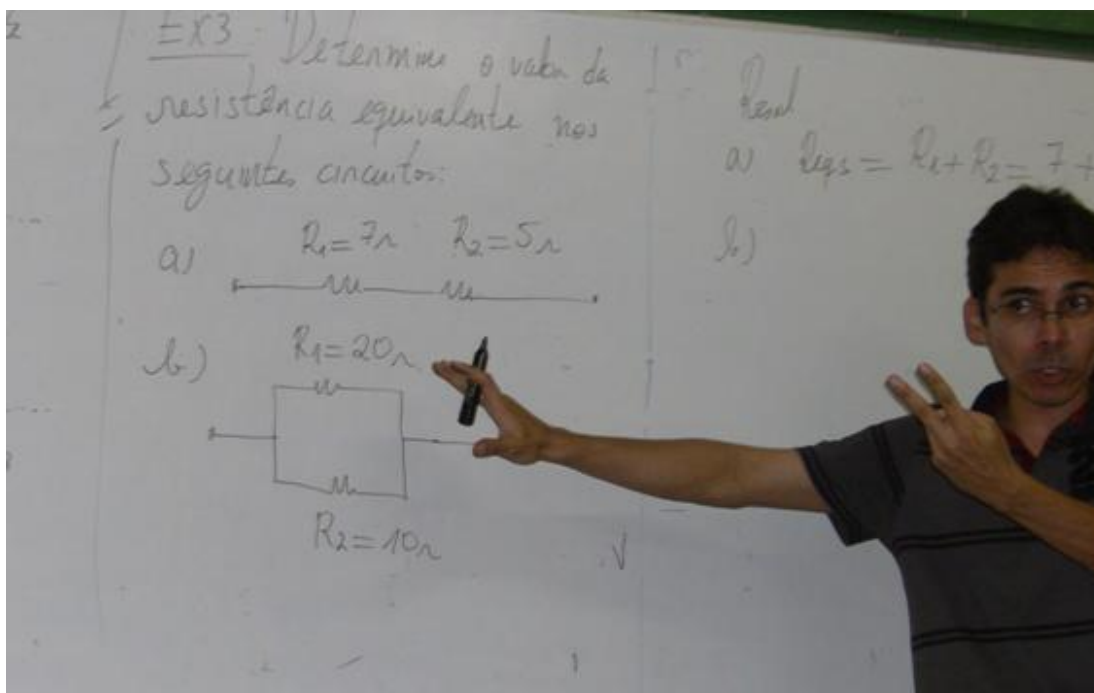 Ex3. Determine o valor da
resistência equivalente nos
seguintes circuitos:
a) R₁=7Ω R₂=5Ω
b) R₁=20Ω
R₂=10Ω
Resol
a) Reqs = R₁+R₂= 7+
b)